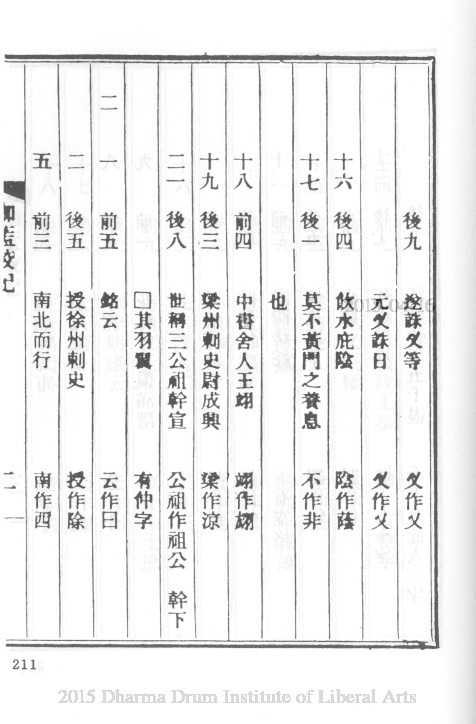 後九 挍誅乂等 乂作乂
元乂誅日 乂作乂
十六 後四 飲水庇陰 陰作蔭
十七 後一 莫不黃門之養息 不作非
也
十八 前四 中書舍人王翊 翊作翃
十九 後三 梁州刺史尉成興 梁作涼
二一 後八 世稱三公祖幹宣 公祖作祖公 幹下
□其羽翼 有仲字
二 前五 銘云 云作曰
二 後五 授徐州刺史 授作除
五 前三 南北而行 南作西
伽藍校記
二一
211
2015 Dharma Drum Institute of Liberal Arts